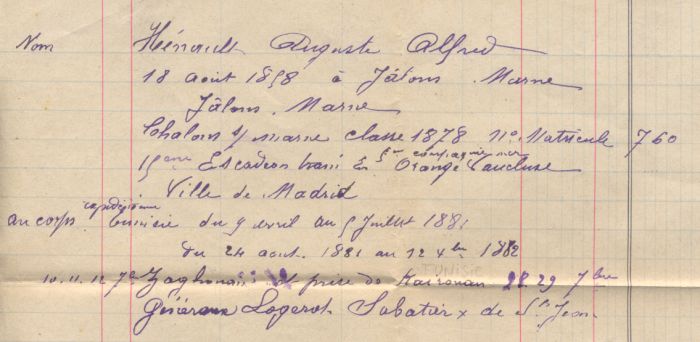 Nom Hénault Auguste Alfred
18 aout 1858 à Jâlons Marne
Jâlons. Marne
Chalons s/ marne classe 1878 No. Matricule 760
15eme Escadron train En compagnie Orange Vaucluse
Ville de Madrid
au corps expéditionnaire Tunisie du 9 avril au 5 Juillet 1881
du 24 aout. 1881 au 12 xbre 1882
10. 11. 12 7e Zaghouan et prise de Kairouan 28 29 7bre
TUNISIE
Généraux Logerot. Sabatier x de St Jean